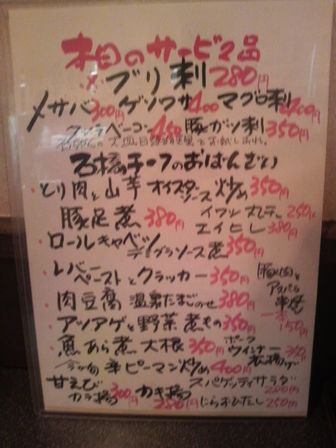 本日のサービス品
ブリ刺 280円
〆サバ 300円 ゲソワサ 400 マグロ刺
クジラベーコン 450 豚ガツ刺 350円
石橋チーフのおばんざい
・とり肉と山芋オイスターソース炒め 350円
豚足煮 380円
エイヒレ 380円
・ロールキャベツデミグラソース煮 350円
・レバーペーストとクラッカー 350円
豚肉とアスパラ串焼 一本150円
・肉豆腐温泉たまごのせ 380円
・アツアゲと野菜煮もの 350円
・魚あら煮大根 350円
ポークウインナー
牛ピーマン炒め 400円
甘えびカラ揚 300円 かき揚
スパゲッティサラダ
にらおひたし 250円